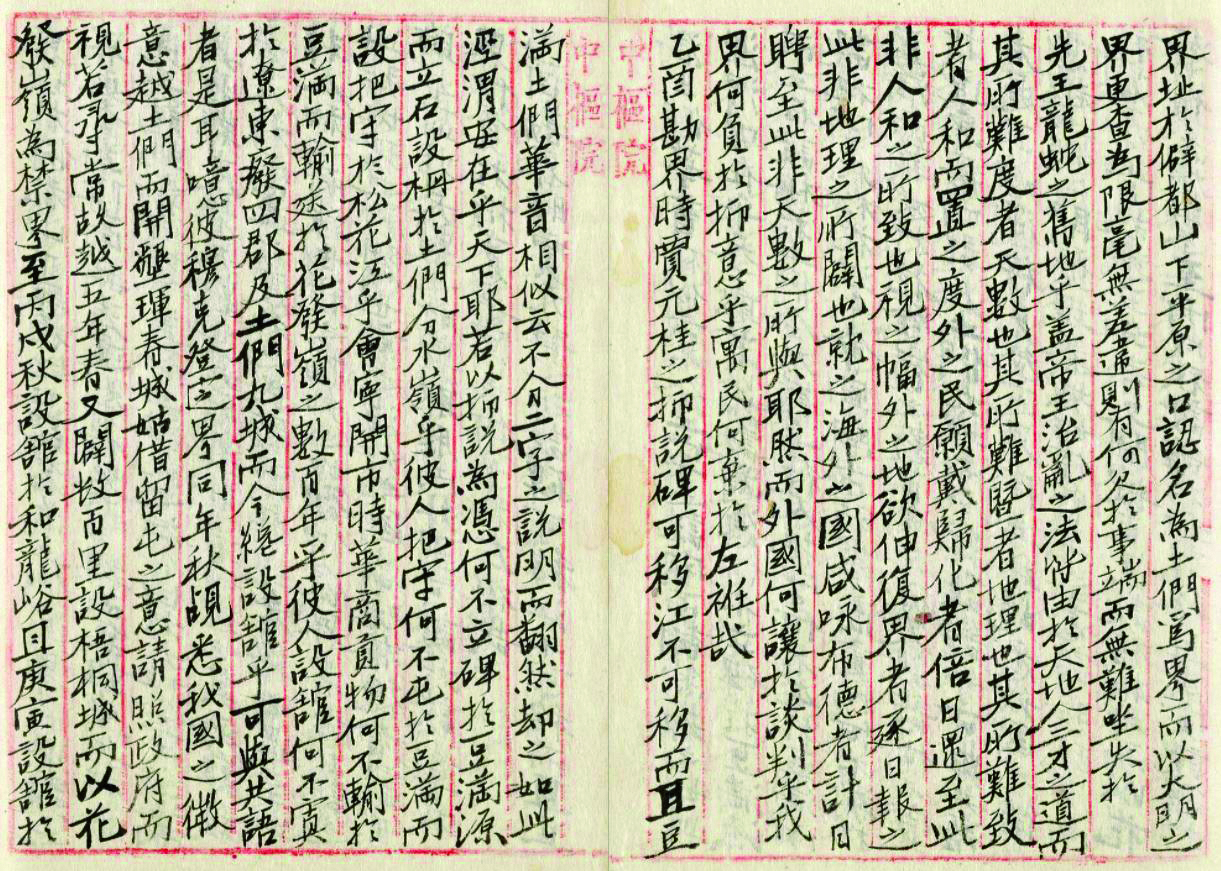 界址於僻都山下平原之口認名為土們寫界而以大明之
界更查為限毫無差滯則有何欠於事端而無難坐失於
先王龍蛇之舊地乎盖帝王治亂之法皆由於天地人三才之道而
其所難度者天數也其所難暨者地理也其所難致
者人和而置之度外之民願戴歸化者倍日還至此
非人和之所致也視之幅外之地欲伸復界者逐日報之
此非地理之所闢也就之海外之國咸咏布德者計日
聘至此非天數之所與耶然而外國何讓於談判乎我
界何負於抑意乎寓民何棄於左袵哉
乙酉勘界時賈元桂之抑說碑可移江不可移而且豆
中樞院
中樞院
滿土們華音相似云不分二字之說明而翻然却之如此
涇渭安在乎天下耶若以抑說為憑何不立碑於豆滿源
而立石設柵於土們分水嶺乎彼人把守何不屯於豆滿而
設把守於松花江乎會寧開市時華商貢物何不輸於
豆滿而輸送於花發嶺之數百年乎彼人設舘何不寘
於遼東癈四郡及土們九城而今纔設舘乎可與共語
者是耳噫彼穆克登定界同年秋覘悉我國之微
意越土們而開疆琿春城姑借留屯之意請照政府而
視若尋常故越五年春又闢数百里設梧桐城而以花
發嶺為禁界至丙戌秋設舘於和龍峪且庚寅設舘於